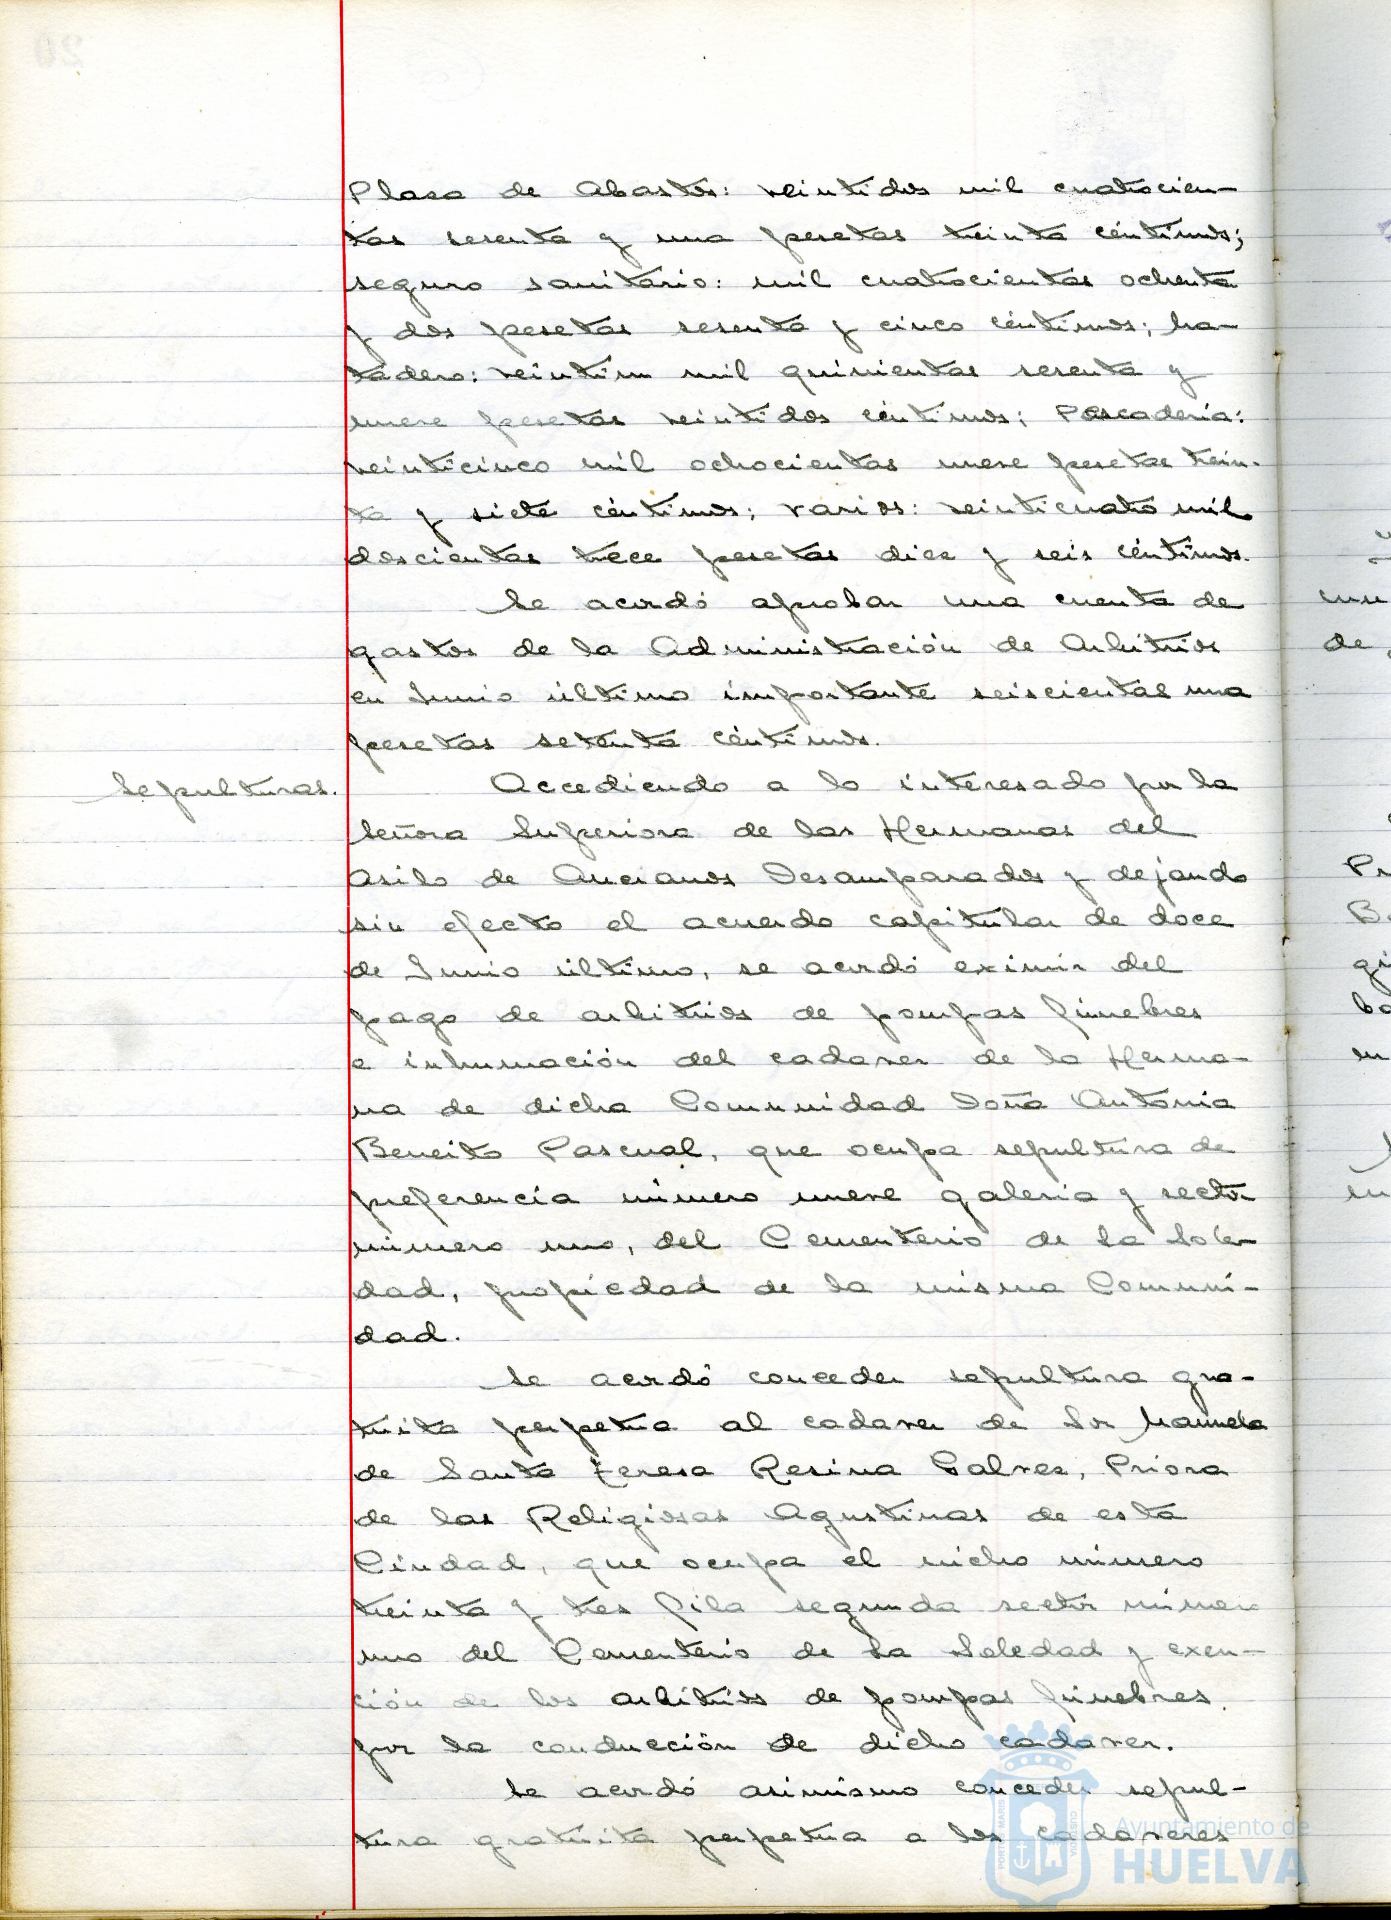 Plasa de Abastos: veintidos mil cuatrocien-
tas sesenta y una pesetas treinta céntimos;
seguro sanitario: mil cuatrocientas ochenta
y dos pesetas sesenta y cinco céntimos; Ma-
tadero: veintiun mil quinientas sesenta y
nueve pesetas veintidos céntimos; Pescaderia:
veinticinco mil ochocientas nueve pesetas trein-
ta y siete céntimos; varios: veinticuatro mil
doscientas trece pesetas diez y seis céntimos.
Se acordó aprobar una cuenta de
gastos de la Administración de Arbitrios
en Junio último importante seiscientas una
pesetas setenta céntimos.
Sepulturas.
Accediendo a lo interesado por la
Señora Superiora de las Hermanas del
Asilo de Ancianos Desamparados y dejando
sin efecto el acuerdo capitular de doce
de Junio último, se acordó eximir del
pago de arbitrios de pompas fúnebres
e inhumación del cadaver de la Herma-
na de dicha Comunidad Doña Antonia
Beneito Pascual, que ocupa sepultura de
preferencia número nueve galeria y sector
número uno, del Cementerio de la Sole-
dad, propiedad de la misma Comuni-
dad.
Se acordó conceder sepultura gra-
tuita perpetua al cadaver de Sor Manuela
de Santa Teresa Resina Galvez, Priora
de las Religiosas Agustinas de esta
Ciudad, que ocupa el nicho número
treinta y tres fila segunda sector número
uno del Cementerio de la Soledad y exen-
ción de los arbitrios de pompas fúnebres
por la conducción de dicho cadaver.
Se acordó asimismo conceder sepul-
tura gratuita perpetua a los cadaveres
Ayuntamiento de
HUELVA